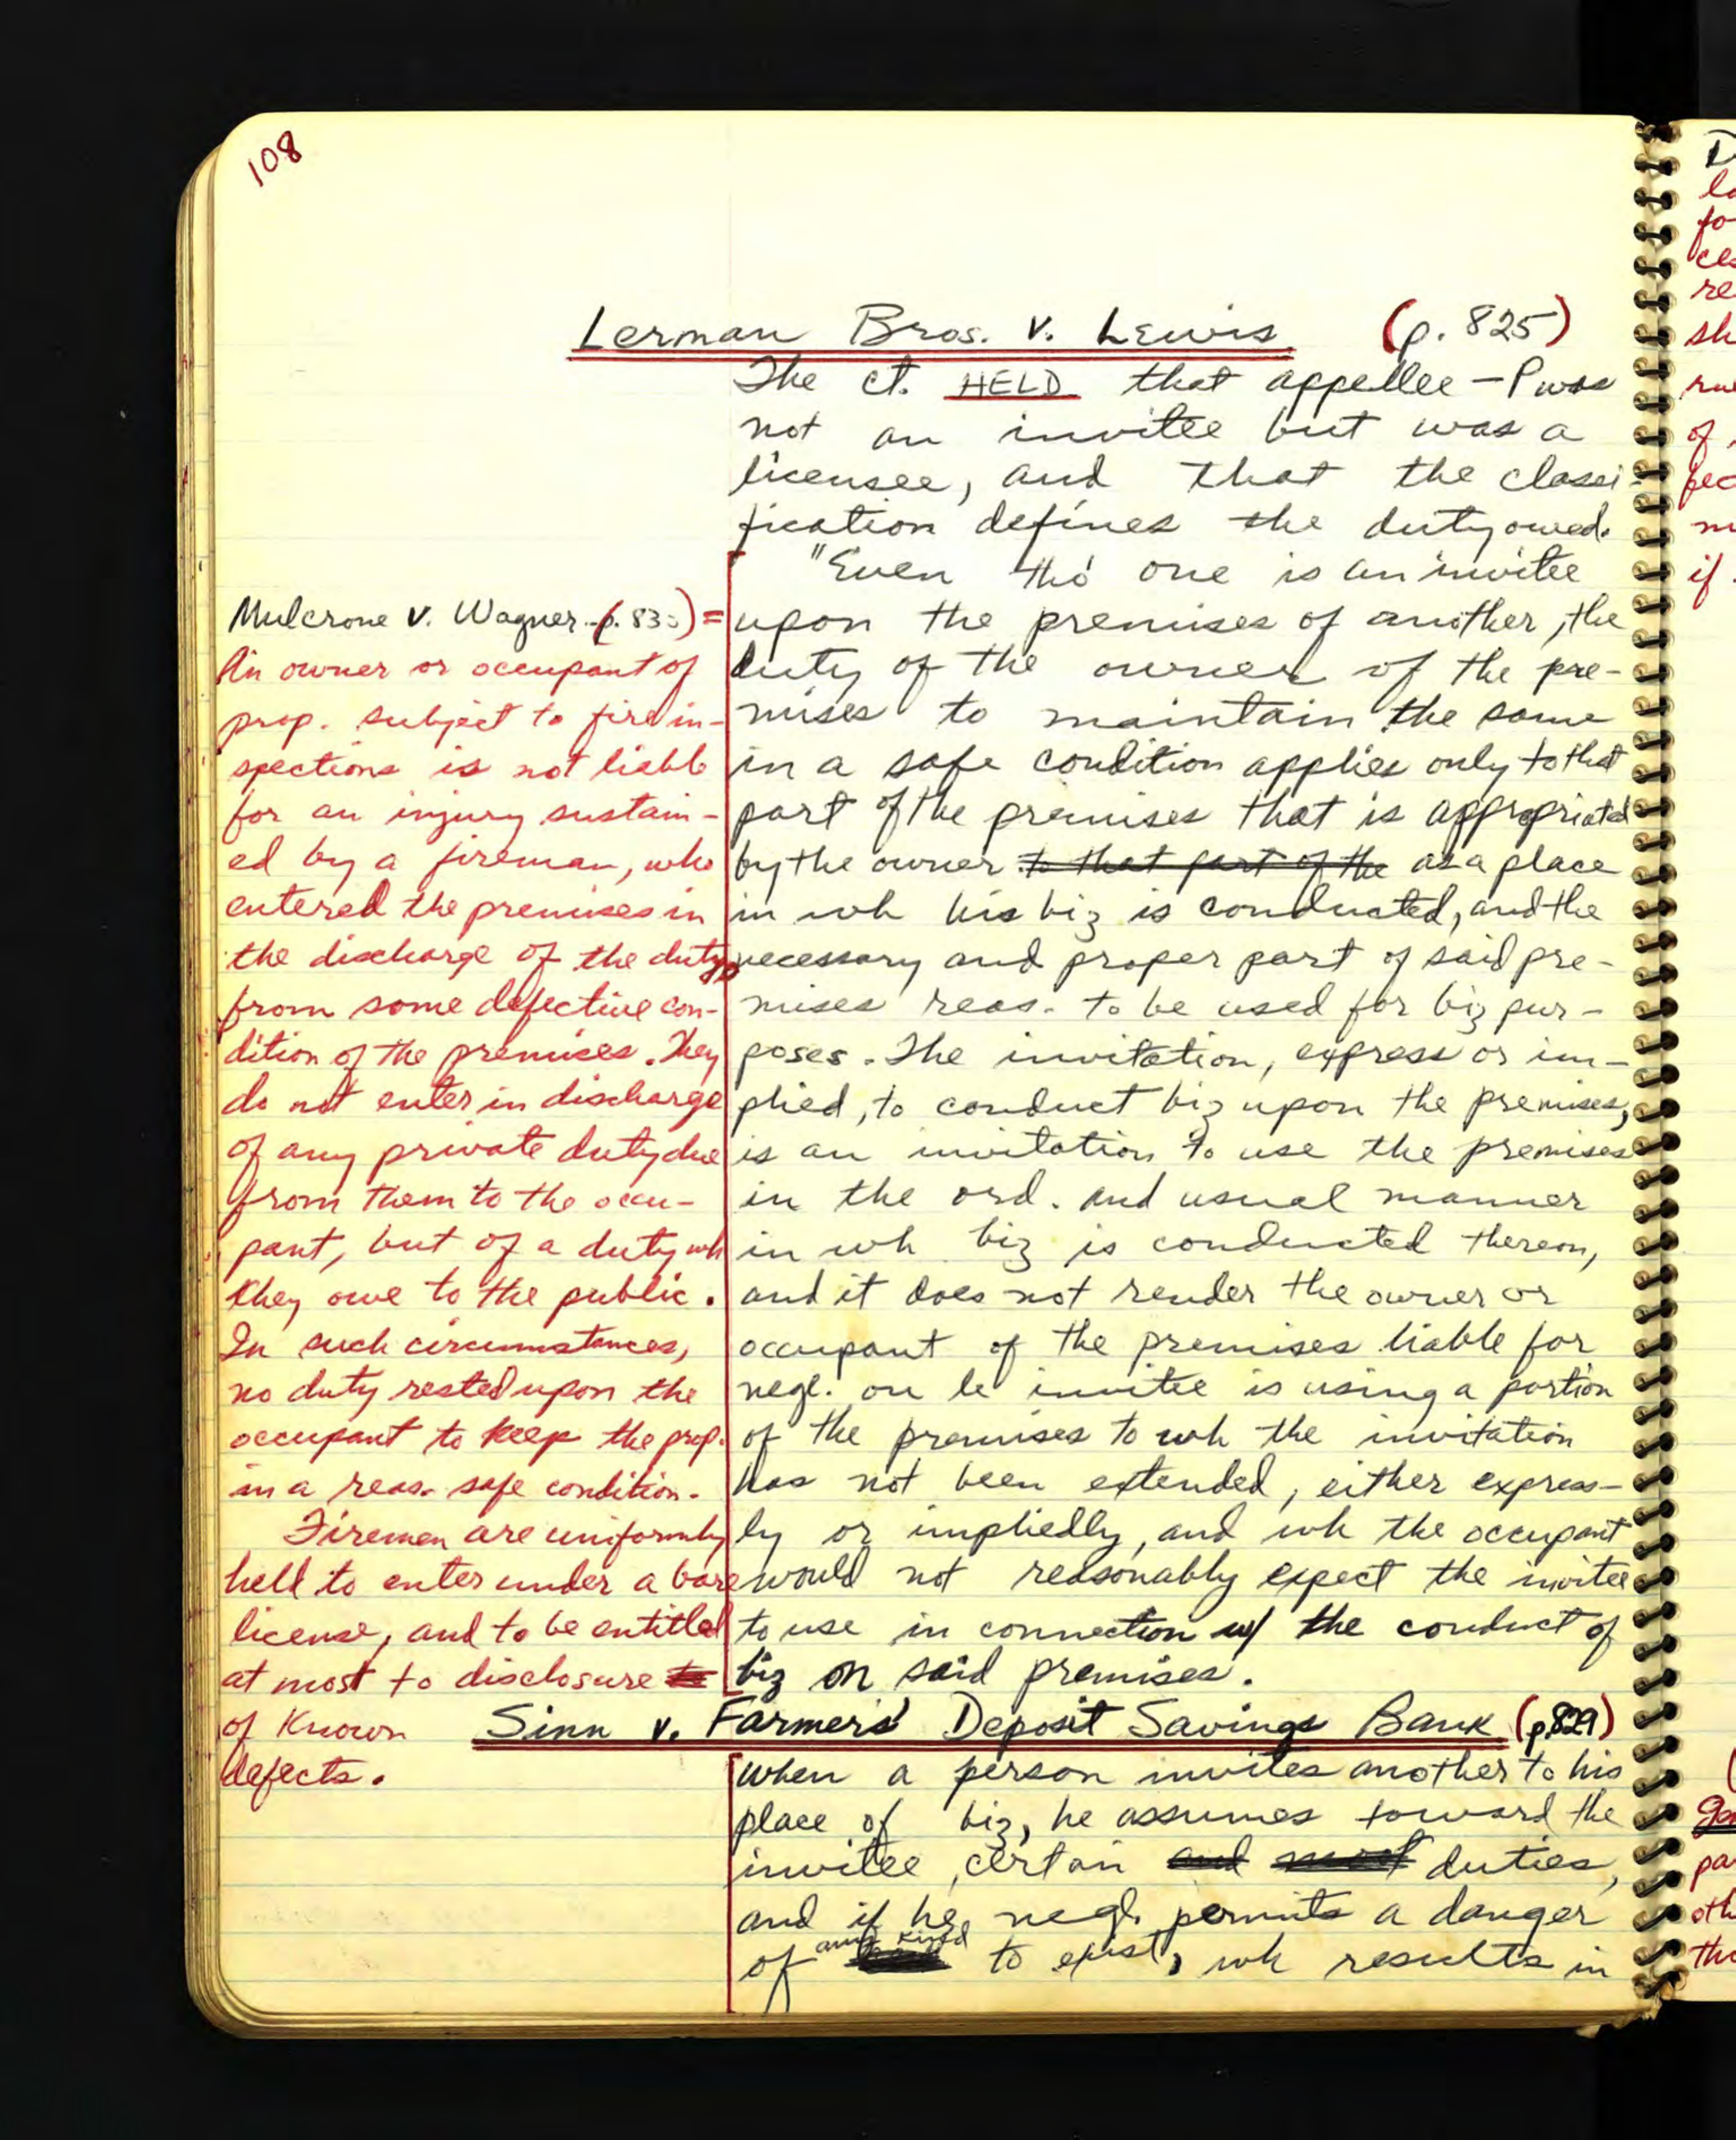 108
Lerman Bros. v. Lewis (p. 825)
The ct. HELD that appellee - P was
not an invitee but was a
licensee, and that the classi-
fication defines the duty owed.
"Even tho' one is an invitee
upon the premises of another, the
duty of the owner of the pre-
mises to maintain the same
in a safe condition applies only to that
part of the premises that is appropriated
by the owner to that part of the as a place
in wh his biz is conducted, and the
necessary and proper part of said pre-
mises reas. to be used for biz pur-
poses. The invitation, express or im-
plied, to conduct biz upon the premises,
is an invitation to use the premises
in the ord. and usual manner
in wh biz is conducted thereon,
and it does not render the owner or
occupant of the premises liable for
negl. on le invitee is using a portion
of the premises to wh the invitation
has not been extended, either express-
ly or impliedly, and wh the occupant
would not reasonably expect the invitee
to use in connection w/ the conduct of
biz on said premises.
Mulcrone v. Wagner (p. 83 ) =
An owner or occupant of
prop. subject to fire in-
spections is not liable
for an injury sustain-
ed by a fireman, who
entered the premises in
the discharge of the duty,
from some defective con-
dition of the premises. They
do not enter in discharge
of any private duty due
from them to the occu-
pant, but of a duty wh
they owe to the public.
In such circumstances,
no duty rested upon the
occupant to keep the prop.
in a reas. safe condition.
Firemen are uniformly
held to enter under a bare
license, and to be entitled
at most to disclosure to
of known
defects.
Sinn v. Farmers' Deposit Savings Bank (p.829)
When a person invites another to his
place of biz, he assumes toward the
invitee, certain and most duties,
and if he negl. permits a danger
of any kind to exist, wh results in